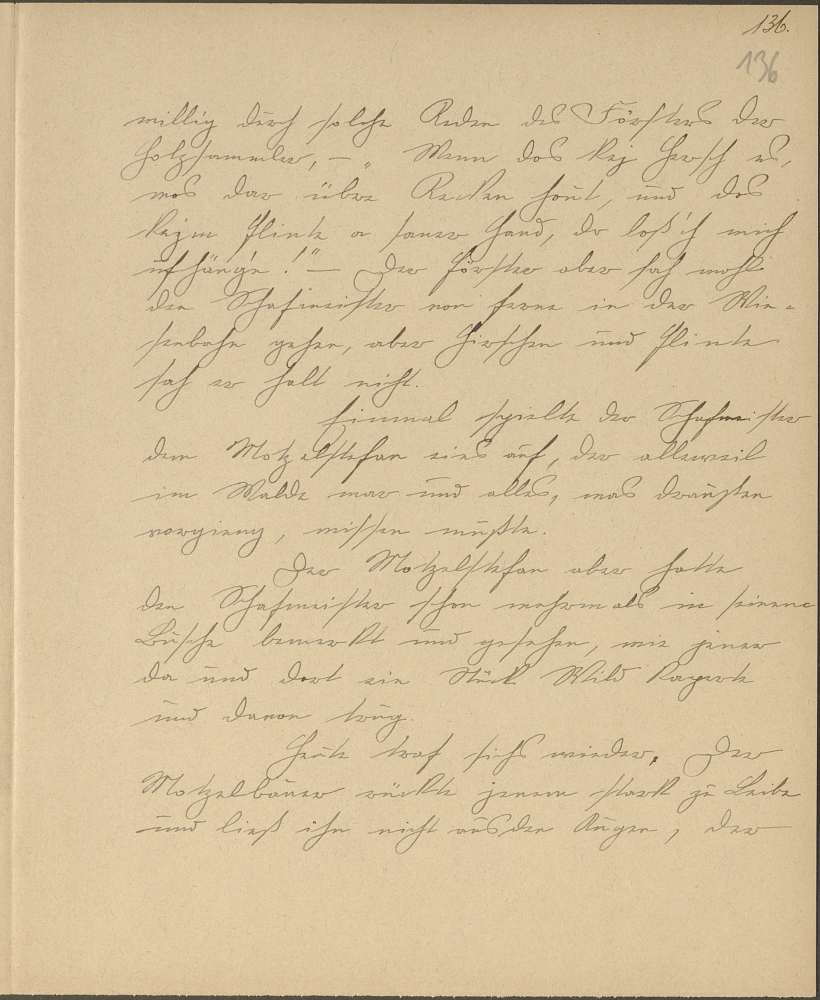 136.
136
willig durch solche Reden des Försters der
Holzsammler, – „ Wenn dos kej Hersch is,
wos dar übern Recken hout, und dos
kejne Flinte a saner Hand, do loß'ch mich
ufhänge!" – Der Förster aber sah wohl
den Schafmeister von ferne in der Wie=
senbahn gehen, aber Hirschen und Flinte
sah er halt nicht.
Einmal spielte der Schafmeister
dem Motzelstefan eins auf, der alleweil
im Walde war und alles, was draußen
vorgieng, wissen mußte.
Der Motzelstefan aber hatte
den Schafmeister schon mehrmals in seinem
Busche bemerkt und gesehen, wie jener
da und dort ein Stück Wild kaperte
und davon trug.
Heute traf sichs wieder. Der
Motzelbauer rückte jenem stark zu Leibe
und ließ ihn nicht aus den Augen, der